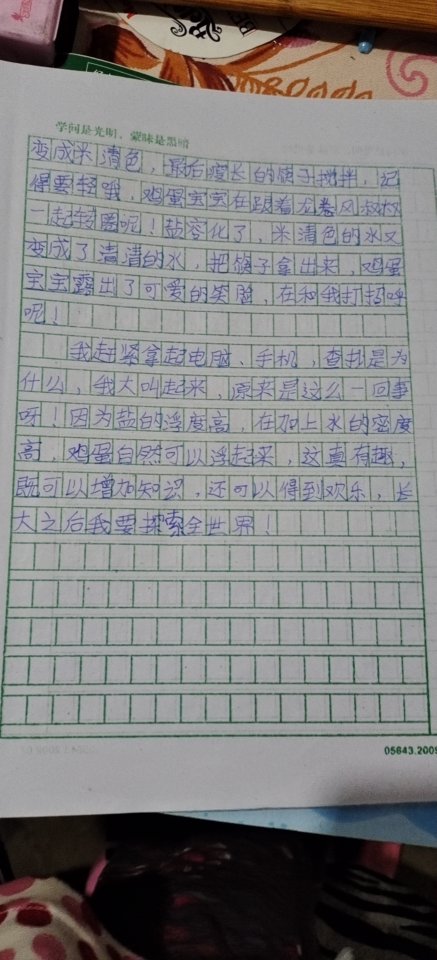 学问是光明,蒙昧是黑暗
变成米清色,最后变长的筷子搅拌,记
得要轻哦,鸡蛋宝宝在跟着龙卷风叔叔
一起转圈呢!盐容化了,米清色的水又
变成了清清的水,把筷子拿出来,鸡蛋
宝宝露出了可爱的笑脸,在和我打招呼
呢!
我赶紧拿起电脑、手机,查扒是为
什么,我大叫起来,原来是这么一回事
呀!因为盐的浮度高,在加上水的密度
高,鸡蛋自然可以浮起来,这真有趣,
既可以增加知识,还可以得到欢乐,长
大之后我要探索全世界!
05643.2009